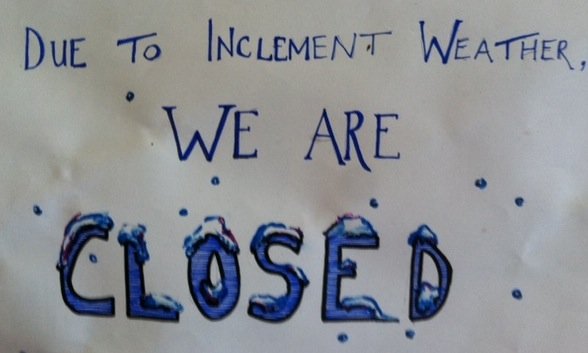 DUE TO INCLEMENT WEATHER,
WE ARE
CLOSED